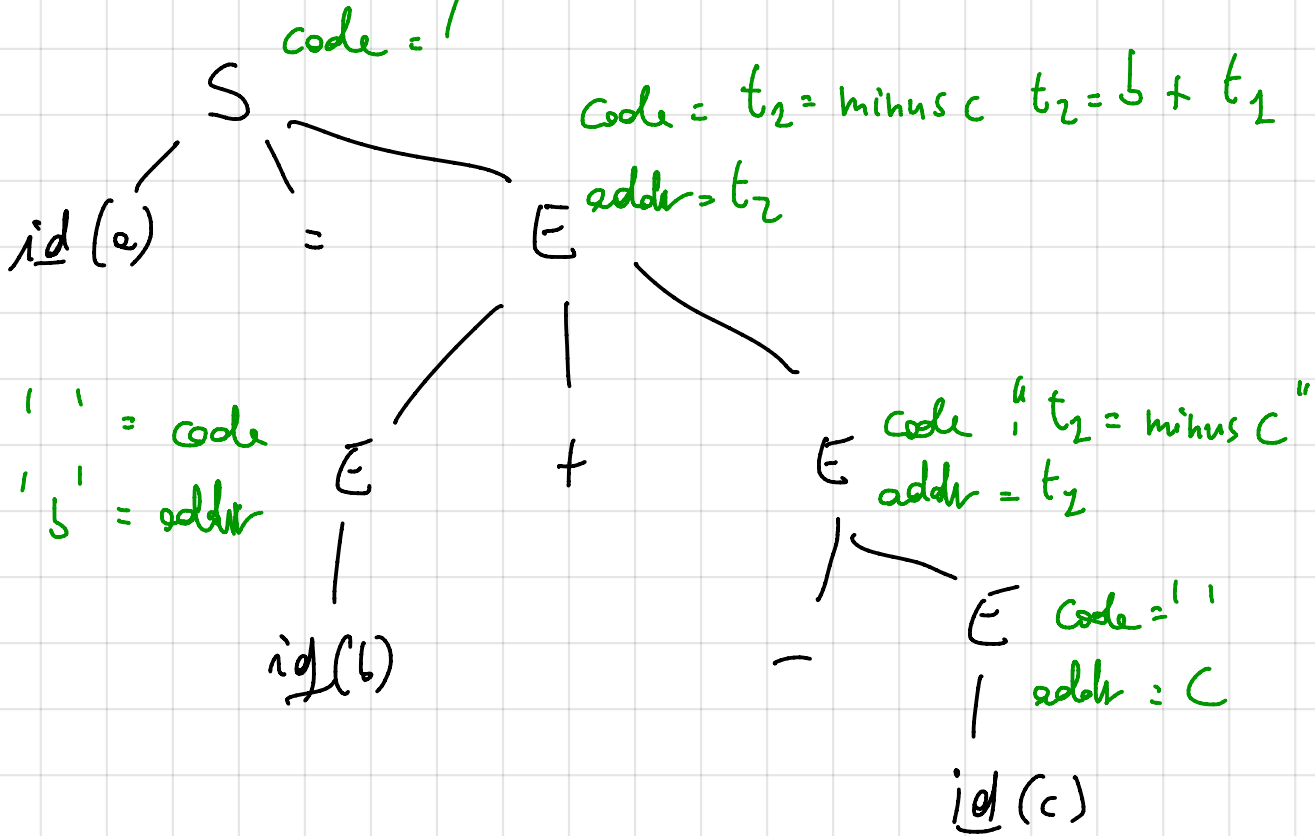 code = '
S
code = t₁ = minus c t₂ = b + t₁
addr = t₂
id (a) = E
' ' = code
' b ' = addr
E + E
code : " t₁ = minus c "
addr = t₁
id (b) - E
code = ' '
addr = c
id (c)